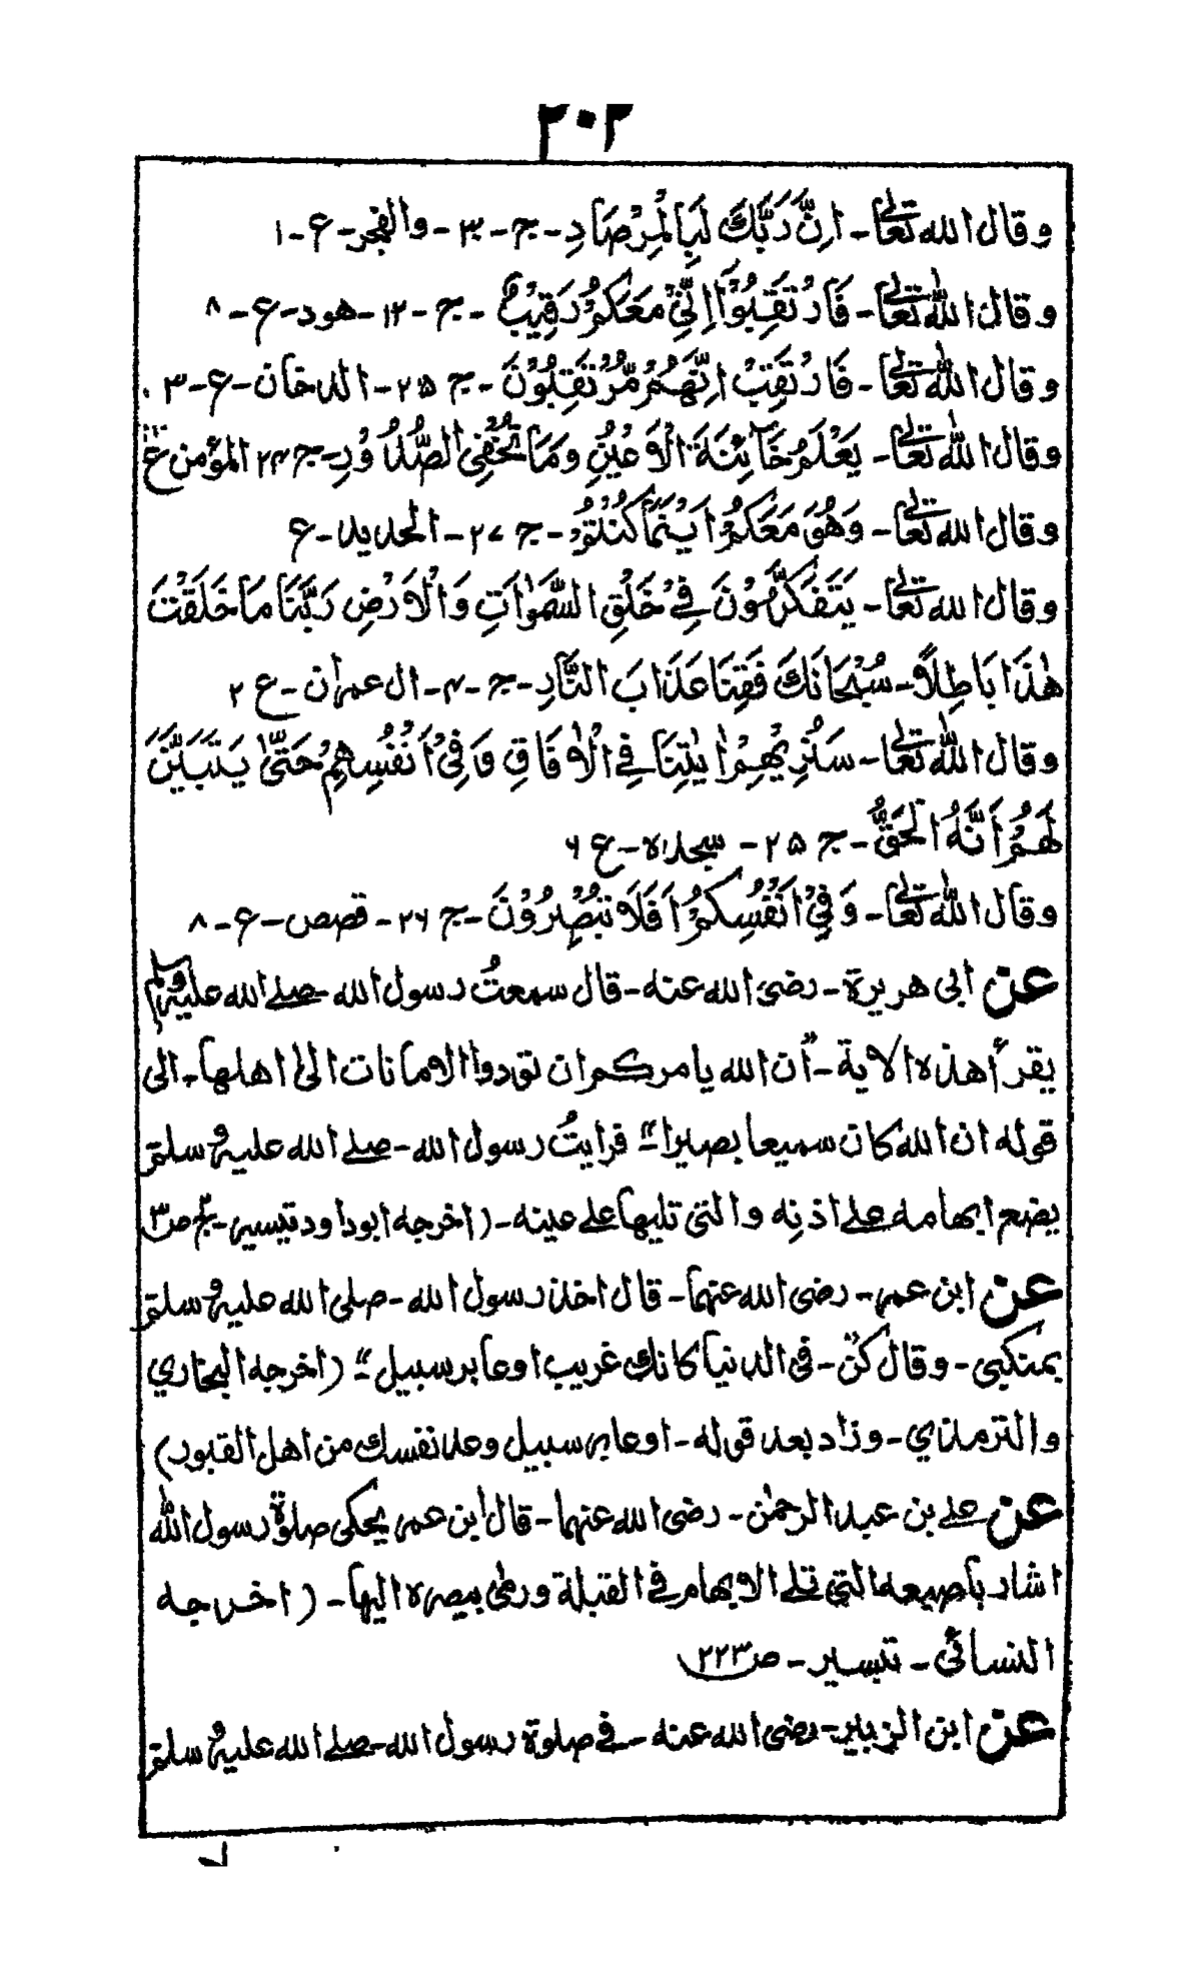 ٢٠٢
وقال الله تعالى - اِنَّ رَبَّكَ لَبِالْمِرْصَادِ - ج - ٣٠ - والفجر - ع - ١
وقال الله تعالى - فَارْتَقِبُوْا اِنِّيْ مَعَكُمْ رَقِيْبٌ - ج - ١٢ - هود - ع - ٨
وقال الله تعالى - فَارْتَقِبْ اِنَّهُمْ مُّرْتَقِبُوْنَ - ج ٢٥ - الدخان - ع - ٣
وقال الله تعالى - يَعْلَمُ خَآئِنَةَ الْاَعْيُنِ وَمَا تُخْفِى الصُّدُوْرِ - ج ٢٤ المؤمن ع
وقال الله تعالى - وَهُوَ مَعَكُمْ اَيْنَمَا كُنْتُمْ - ج ٢٧ - الحديد - ع
وقال الله تعالى - يَتَفَكَّرُوْنَ فِيْ خَلْقِ السَّمٰوَاتِ وَالْاَرْضِ رَبَّنَا مَا خَلَقْتَ
هٰذَا بَاطِلًا - سُبْحَانَكَ فَقِنَا عَذَابَ النَّارِ - ج - ٤ - ال عمران - ع ٢
وقال الله تعالى - سَنُرِيْهِمْ اٰيٰتِنَا فِي الْاٰفَاقِ وَفِيْ اَنْفُسِهِمْ حَتّٰى يَتَبَيَّنَ
لَهُمْ اَنَّهُ الْحَقُّ - ج ٢٥ - سجده - ع ٦
وقال الله تعالى - وَفِيْ اَنْفُسِكُمْ اَفَلَا تُبْصِرُوْنَ - ج ٢٦ - قصص - ع - ٨
عن ابى هريرة - رضى الله عنه - قال سمعتُ رسول الله - صلے الله عليه وسلم
يقرأ هذه الاية - "ان الله يامركم ان تؤدوا الامانات الى اهلها - الى
قوله ان الله كان سميعا بصيرا" فرايتُ رسول الله - صلے الله عليه وسلم
يضع ابهامه علے اذنه والتى تليها علے عينه - (اخرجه ابوداود تيسير -
عن ابن عمر - رضى الله عنهما - قال اخذ رسول الله - صلى الله عليه وسلم
بمنكبى - وقال كن - فى الدنيا كانك غريب او عابر سبيل" (اخرجه البخاري
والترمذي - وزاد بعد قوله - او عابر سبيل وعد نفسك من اهل القبور)
عن علے بن عبد الرحمٰن - رضى الله عنهما - قال ابن عمر يحكى صلوة رسول الله
اشار باصبعه التى تلے الابهام فے القبلة ورمى ببصره اليها - (اخرجه
النسائى - تيسير - ص ٢٢٣
عن ابن الزبير - رضى الله عنه - فے صلوة رسول الله - صلے الله عليه وسلم